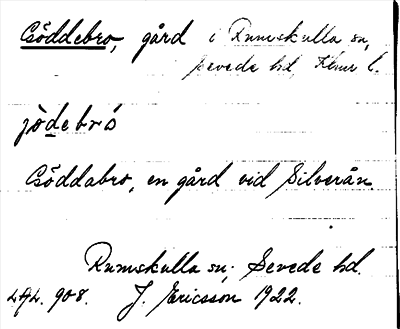 Csöddebro, gård i Rumskulla sn,
Sevede hd, Kalmar l.
jödebrö
Csöddabro, en gård vid Silverån.
Rumskulla sn. Sevede hd.
908. J. Ericsson 1922.